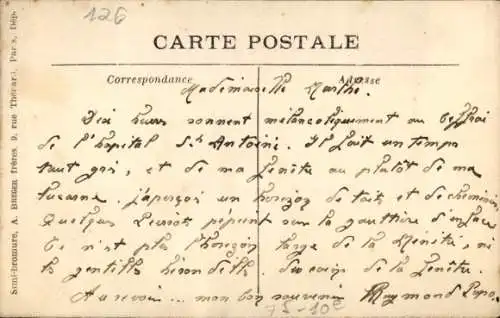 126
CARTE POSTALE
Correspondance
Adresse
Mademoiselle Marthe.
Dix heures sonnent mélancoliquement au beffroi
de l'hopital St Antoine. Il fait un temps
tout gris, et de ma fenêtre ou plutôt de ma
lucarne j'aperçois un horizon de toits et de cheminées
Quelques pierrots pépient sur la gouttière d'en face
Ce n'est plus l'horizon large de la ni
les gentilles hirondelles du coin de la fenêtre.
Au revoir... mon bon souvenir Raymond
75-10e
Semi-bromure, A. Breger frères 9, rue Thénard, Paris, Dép.